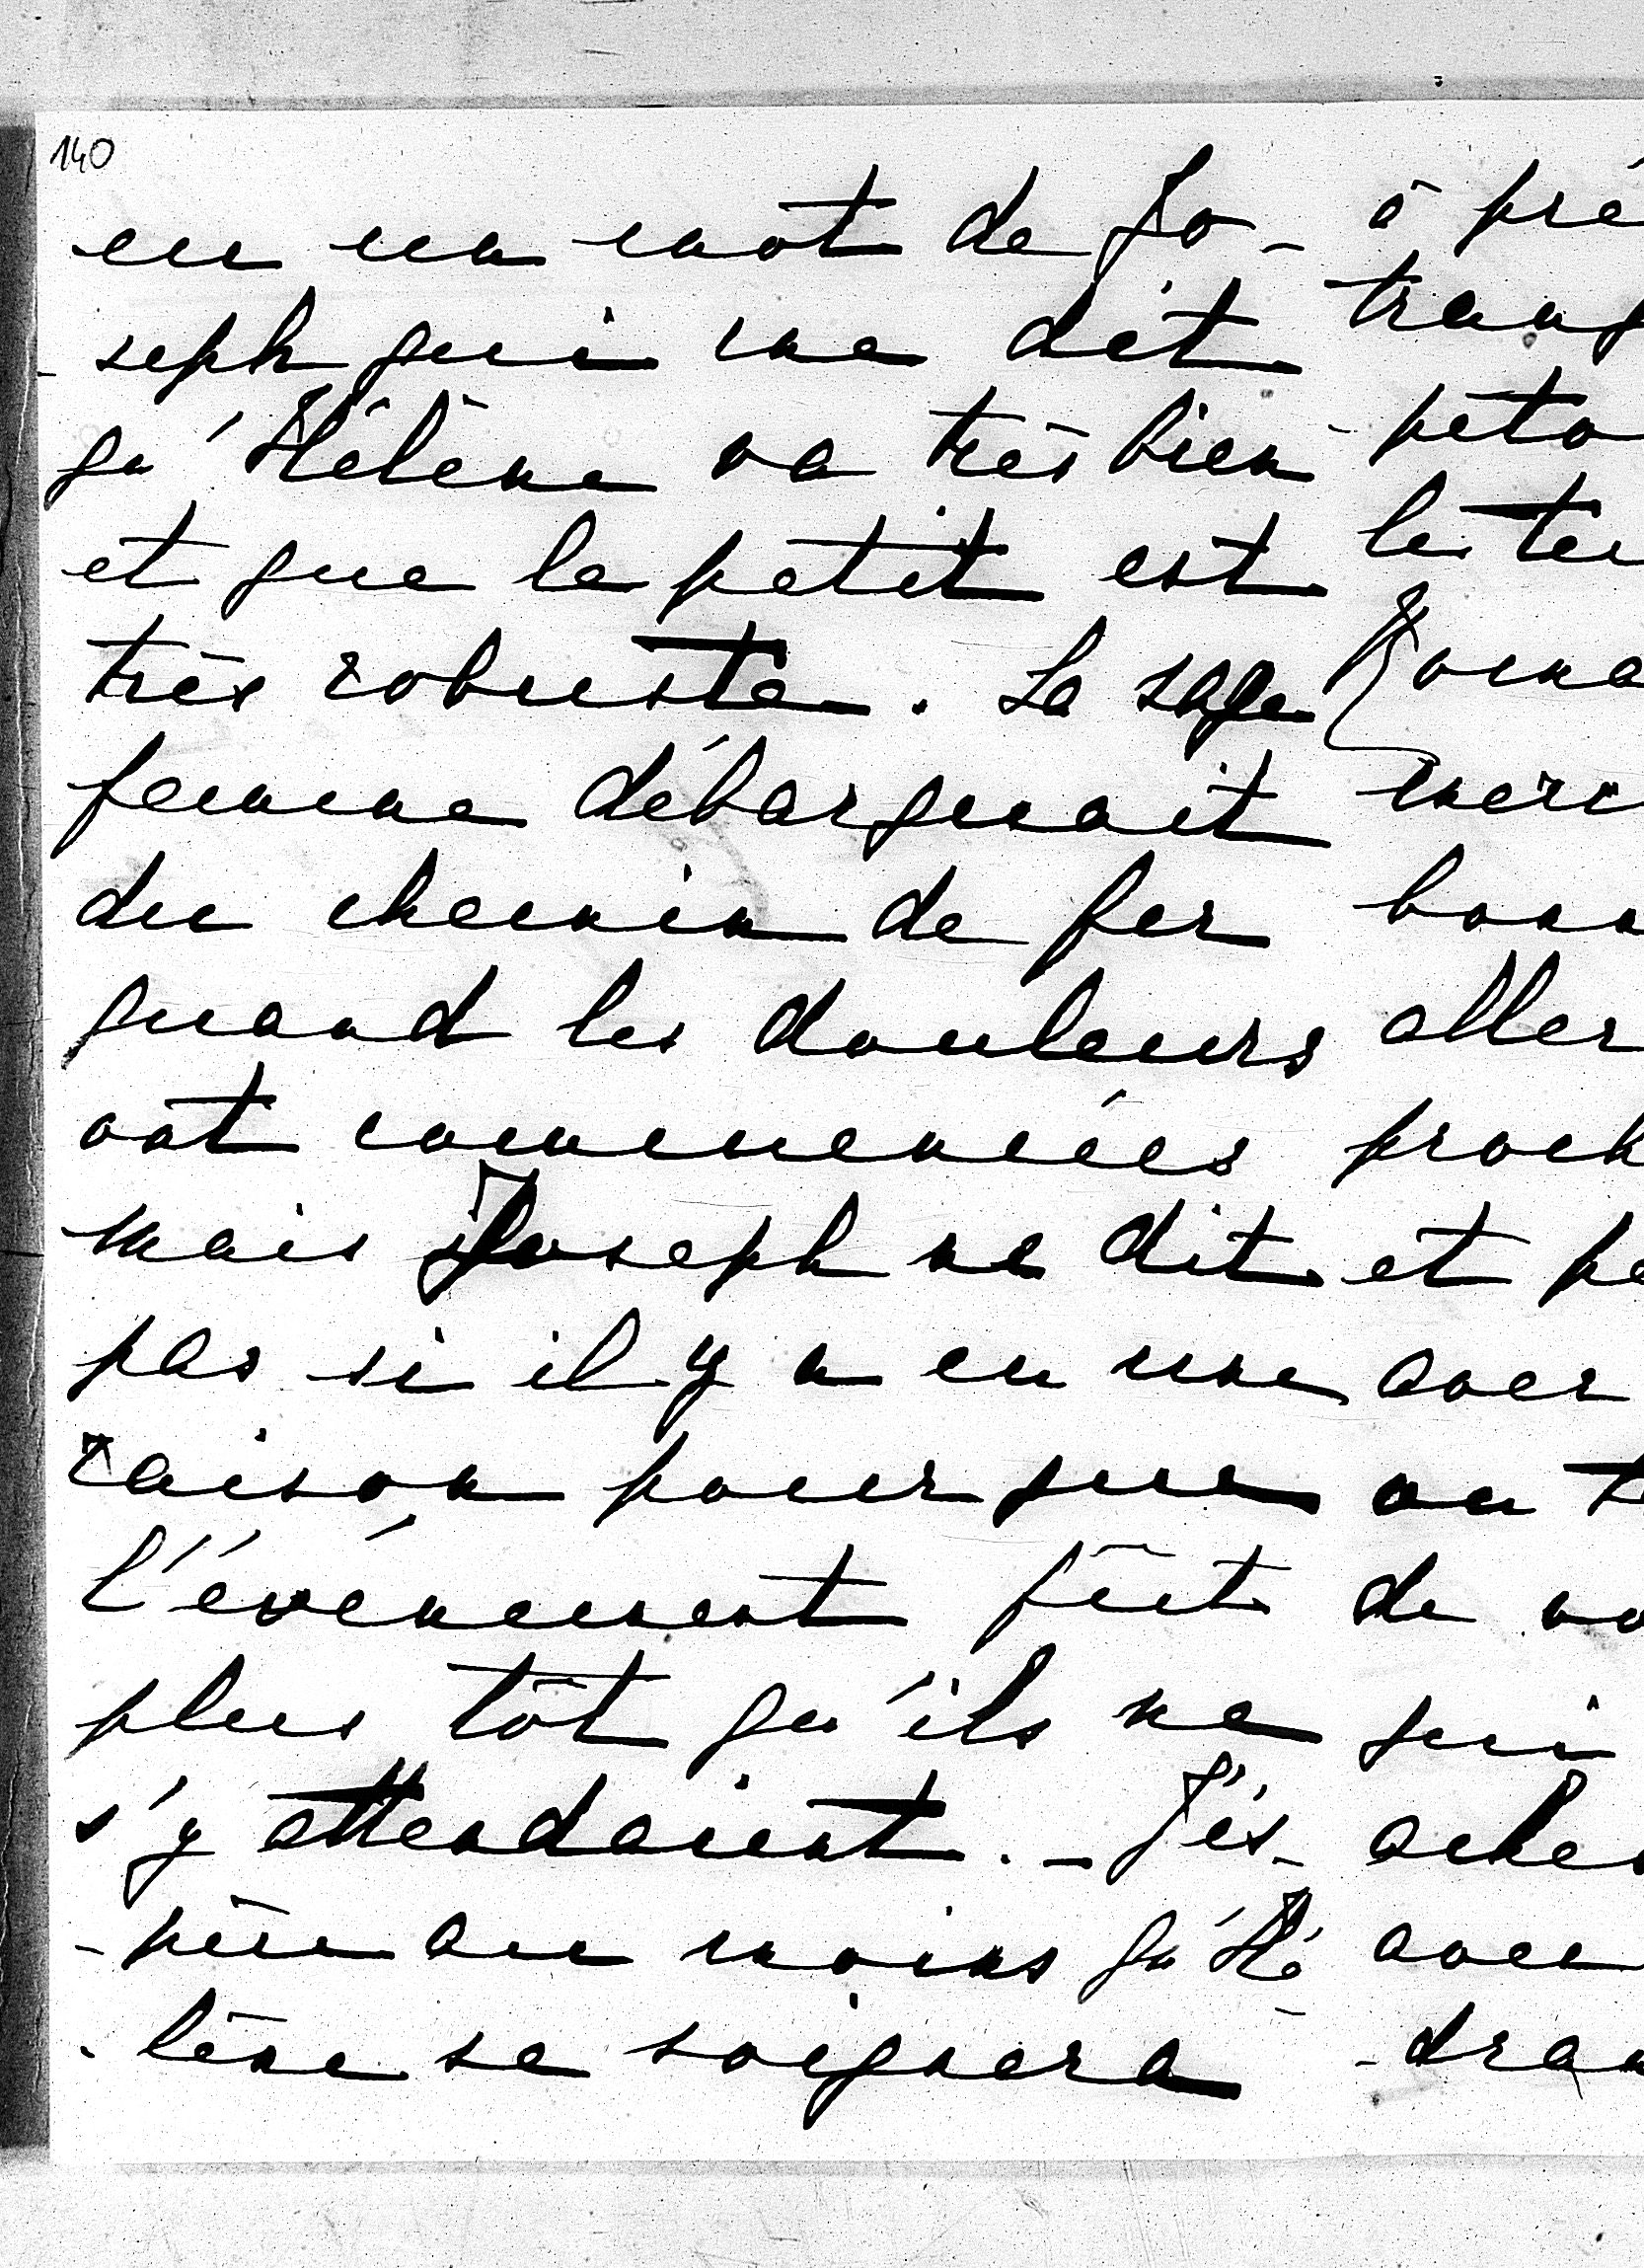 140
eu un mot de Jo-
-seph qui me dit
qu'Hélène va très bien
et que le petit est
très robuste. La sage
femme débarquait
du chemin de fer
quand les douleurs
ont commencées
mais Joseph ne dit
pas si il y a eu une
raison pour que
l'événement fût
plus tôt qu'ils ne
s'y attendaient. - J'es-
-père au moins qu'Hé
-lène se soignera
à pré
tranq
-péto
les
merc
bonn
aller
proch
et pe
avec
ou t
de vo
qui
ache
avec
-dra